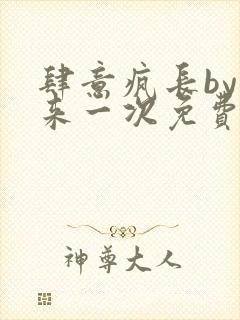 肆意疯长by
来一次免費
神尊大人